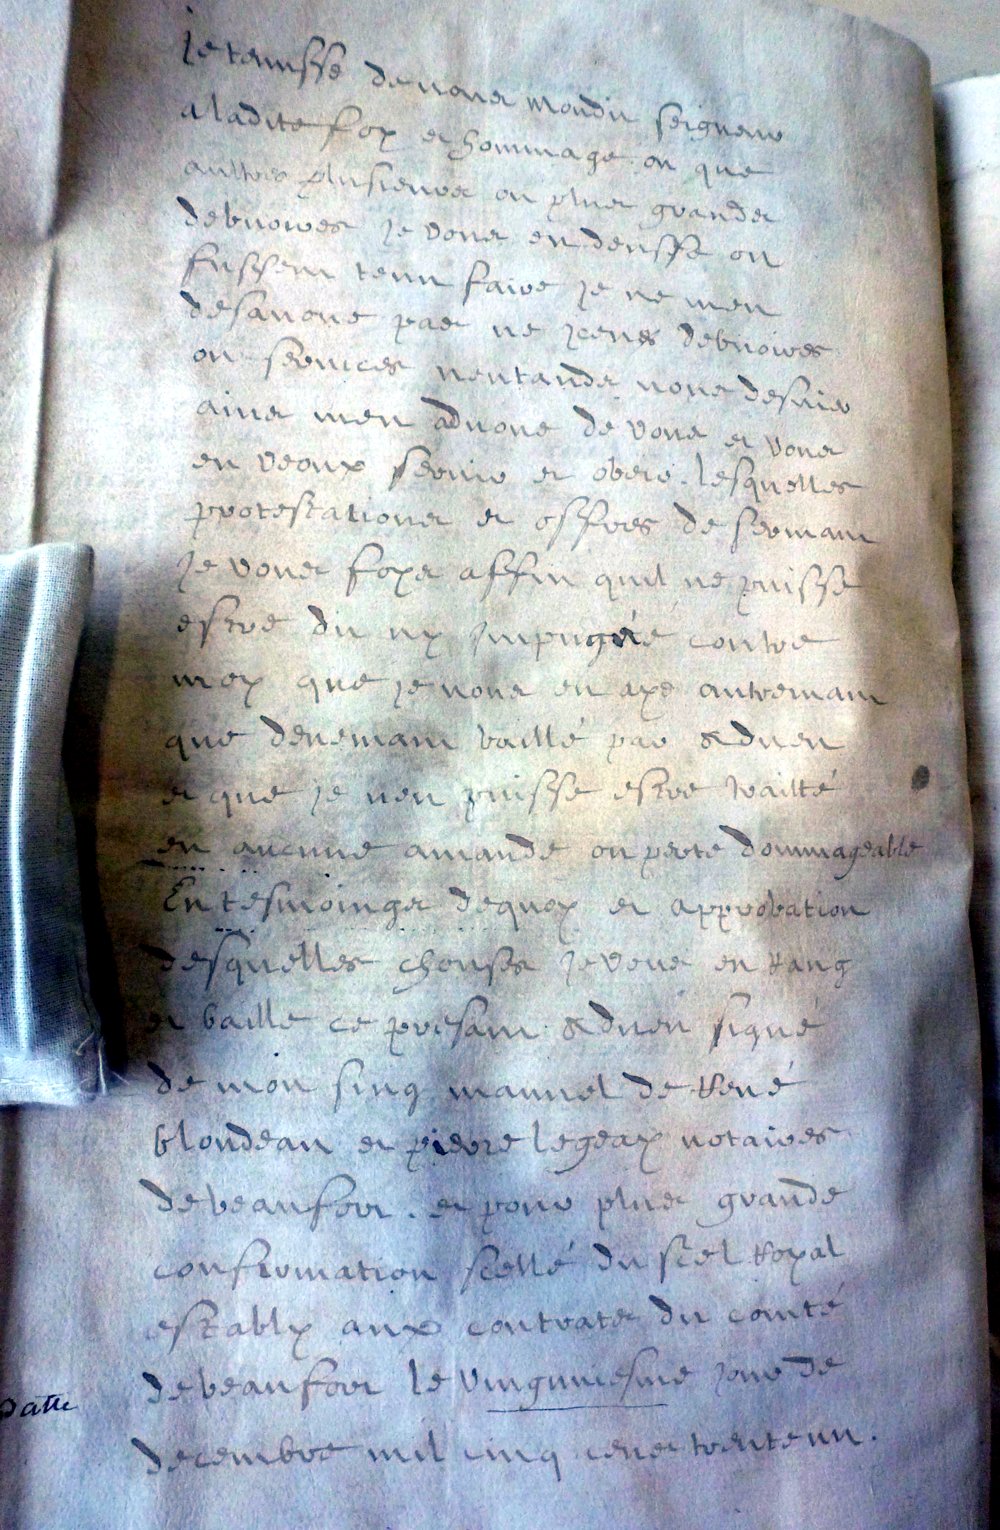 je tensisse de vous mondit seigneur
a ladite foy et hommage ou que
aultres plusieurs ou plus grandes
debvoires je vous en deusse ou
fussent tenu faire je ne men
desavoue pas ne jceus debvoires
ou services nentands vous desnier
ains men advoue de vous et vous
en veoux servir et obeir. lesquelles
protestations et offres de serment
je vous foys affin quil ne puisse
estre dit ny jmpugné contre
moy que je vous en aye autrement
que deuement baillé par adveu
et que je nen puisse estre traitté
en aucune amande ou perte dommageable
En tesmoings dequoy et approbation
desquelles chouses je vous en rang
et baille ce present adveu signé
de mon sing manuel de René
blondeau et pierre legeay notaires
de beaufort. et pour plus grande
confirmation scellé du scel Royal
estably aux contrats du comté
de beaufort le vinguniesme jour de
Datte
decembre mil cinq cens trente un.